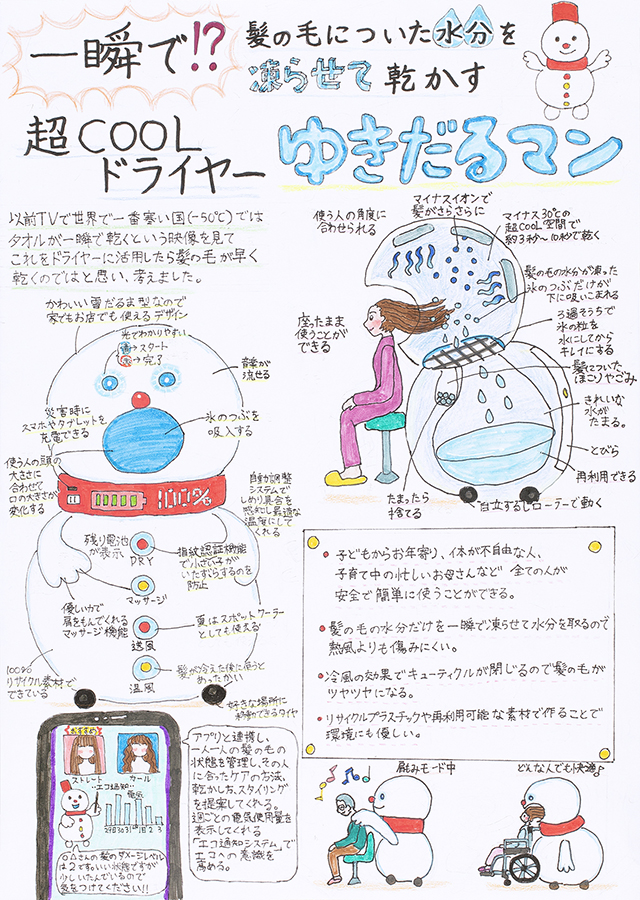 一瞬で!?
髪の毛についた水分を
凍らせて乾かす
超COOL
ドライヤー
ゆきだるマン
以前TVで世界で一番寒い国(-50℃)では
タオルが一瞬で乾くという映像を見て
これをドライヤーに活用したら髪の毛が早く
乾くのではと思い、考えました。
使う人の角度に
合わせられる
マイナスイオンで
髪がさらさらに
マイナス30℃の
超COOL空間で
約3秒〜10秒で乾く
髪の毛の水分が凍った
氷のつぶだけが
下に吸いこまれる
3過そうちで
氷の粒を
水にしてから
キレイにする
髪についた
ほこりやごみ
きれいな
水が
たまる。
とびら
再利用できる
座ったまま
使うことが
できる
たまったら
捨てる
自立するしローラーで動く
かわいい雪だるま型なので
家でもお店でも使えるデザイン
光でわかりやすい
青→スタート
赤→完了
音楽が
流せる
災害時に
スマホやタブレットを
充電できる
氷のつぶを
吸入する
使う人の頭の
大きさに
合わせて
口の大きさが
変化する
100%
自動調整
システムで
しめり具合を
感知し最適な
温度にして
くれる
残り電池
が表示
DRY
指紋認証機能
で小さい子が
いたずらするのを
防止
マッサージ
優しい力で
肩をもんでくれる
マッサージ機能
送風
夏はスポットクーラー
としても使える
温風
髪が冷えた後に使うと
あったかい
100%
リサイクル素材で
できている
好きな場所に
移動できるタイヤ
• 子どもからお年寄り、体が不自由な人、
子育て中の忙しいお母さんなど 全ての人が
安全で簡単に使うことができる。
• 髪の毛の水分だけを一瞬で凍らせて水分を取るので
熱風よりも傷みにくい。
• 冷風の効果でキューティクルが閉じるので髪の毛が
ツヤツヤになる。
• リサイクルプラスチックや再利用可能な素材で作ることで
環境にも優しい。
おすすめ
ストレート
カール
エコ通知
電気
29 30 31 1 2 3
さんの髪のダメージレベル
は2です。いい状態ですが
少しいたんでいるので
気をつけてください!!
アプリと連携し、
一人一人の髪の毛の
状態を管理し、その人
に合ったケアの方法、
乾かし方、スタイリング
を提案してくれる。
週ごとの電気使用量を
表示してくれる
「エコ通知システム」で
エコへの意識を
高める。
肩もみモード中
どんな人でも快適♪